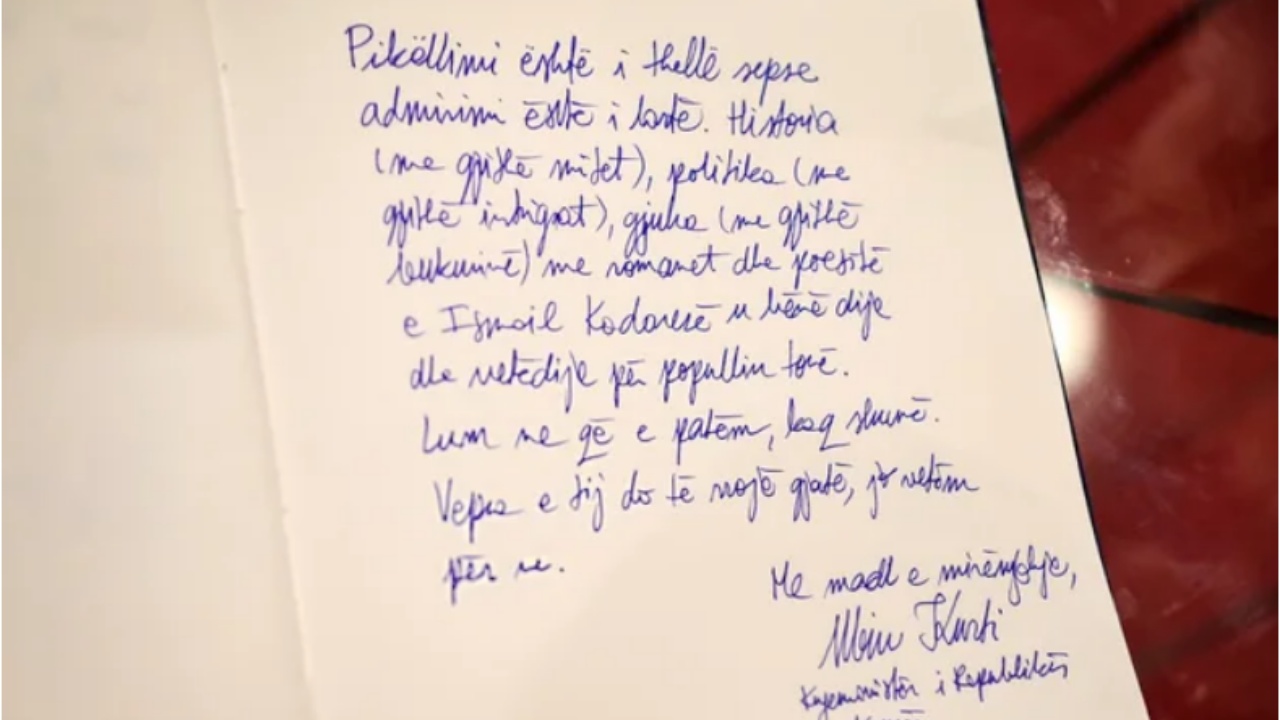 Pikëllimi është i thellë sepse
admirimi është i lartë. Historia
(me gjithë mitet), politika (me
gjithë intrigat), gjuha (me gjithë
bukurinë) me romanet dhe poezitë
e Ismail Kadaresë u bënë dije
dhe vetëdije për popullin tonë.
Lum ne që e patëm, kaq shumë.
Vepra e tij do të rrojë gjatë, jo vetëm
për ne.
Me mall e mirënjohje,
Albin Kurti
Kryeministër i Republikës